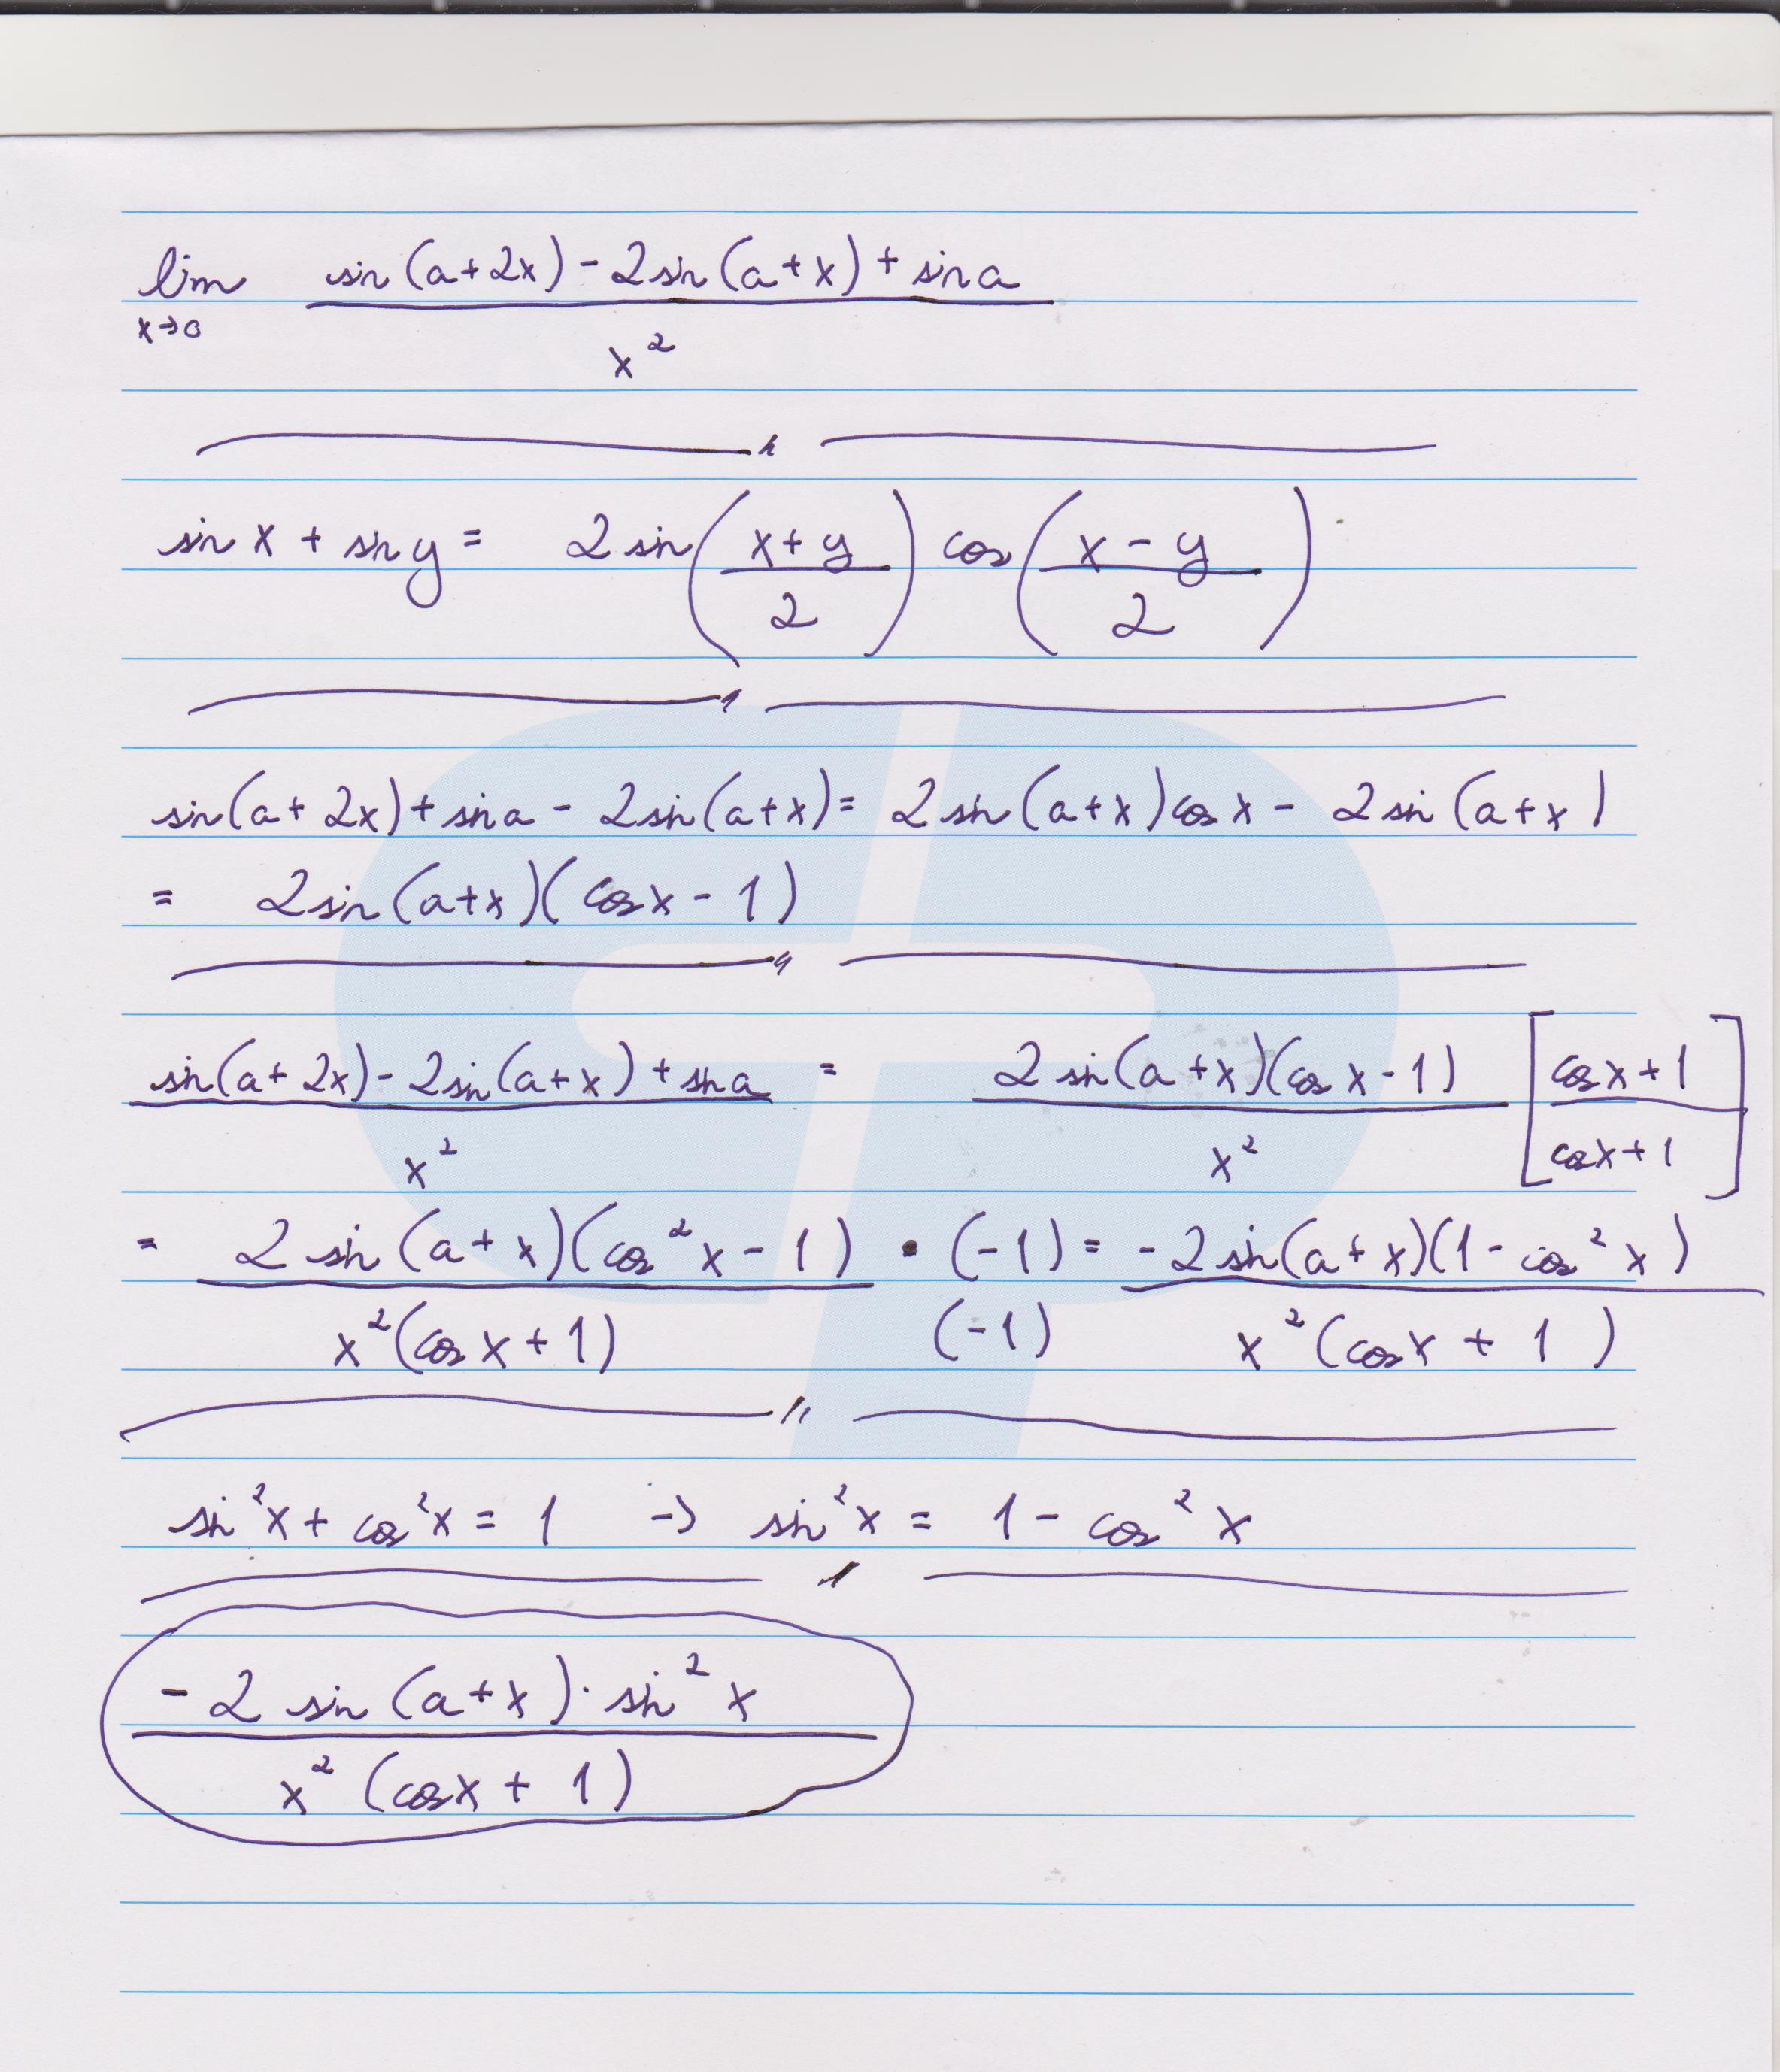 lim x→0 sin(a+2x) - 2sin(a+x) + sin a / x²
sin x + sin y = 2 sin((x+y)/2) cos((x-y)/2)
sin(a+2x) + sin a - 2sin(a+x) = 2sin(a+x)cos x - 2sin(a+x)
= 2sin(a+x)(cos x - 1)
sin(a+2x) - 2sin(a+x) + sin a / x² = 2sin(a+x)(cos x - 1) / x² [cos x + 1 / cos x + 1]
= 2 sin(a+x)(cos²x - 1) / x²(cos x + 1) · (-1) / (-1) = -2sin(a+x)(1 - cos²x) / x²(cos x + 1)
sin²x + cos²x = 1 → sin²x = 1 - cos²x
-2 sin(a+x) · sin²x / x²(cos x + 1)